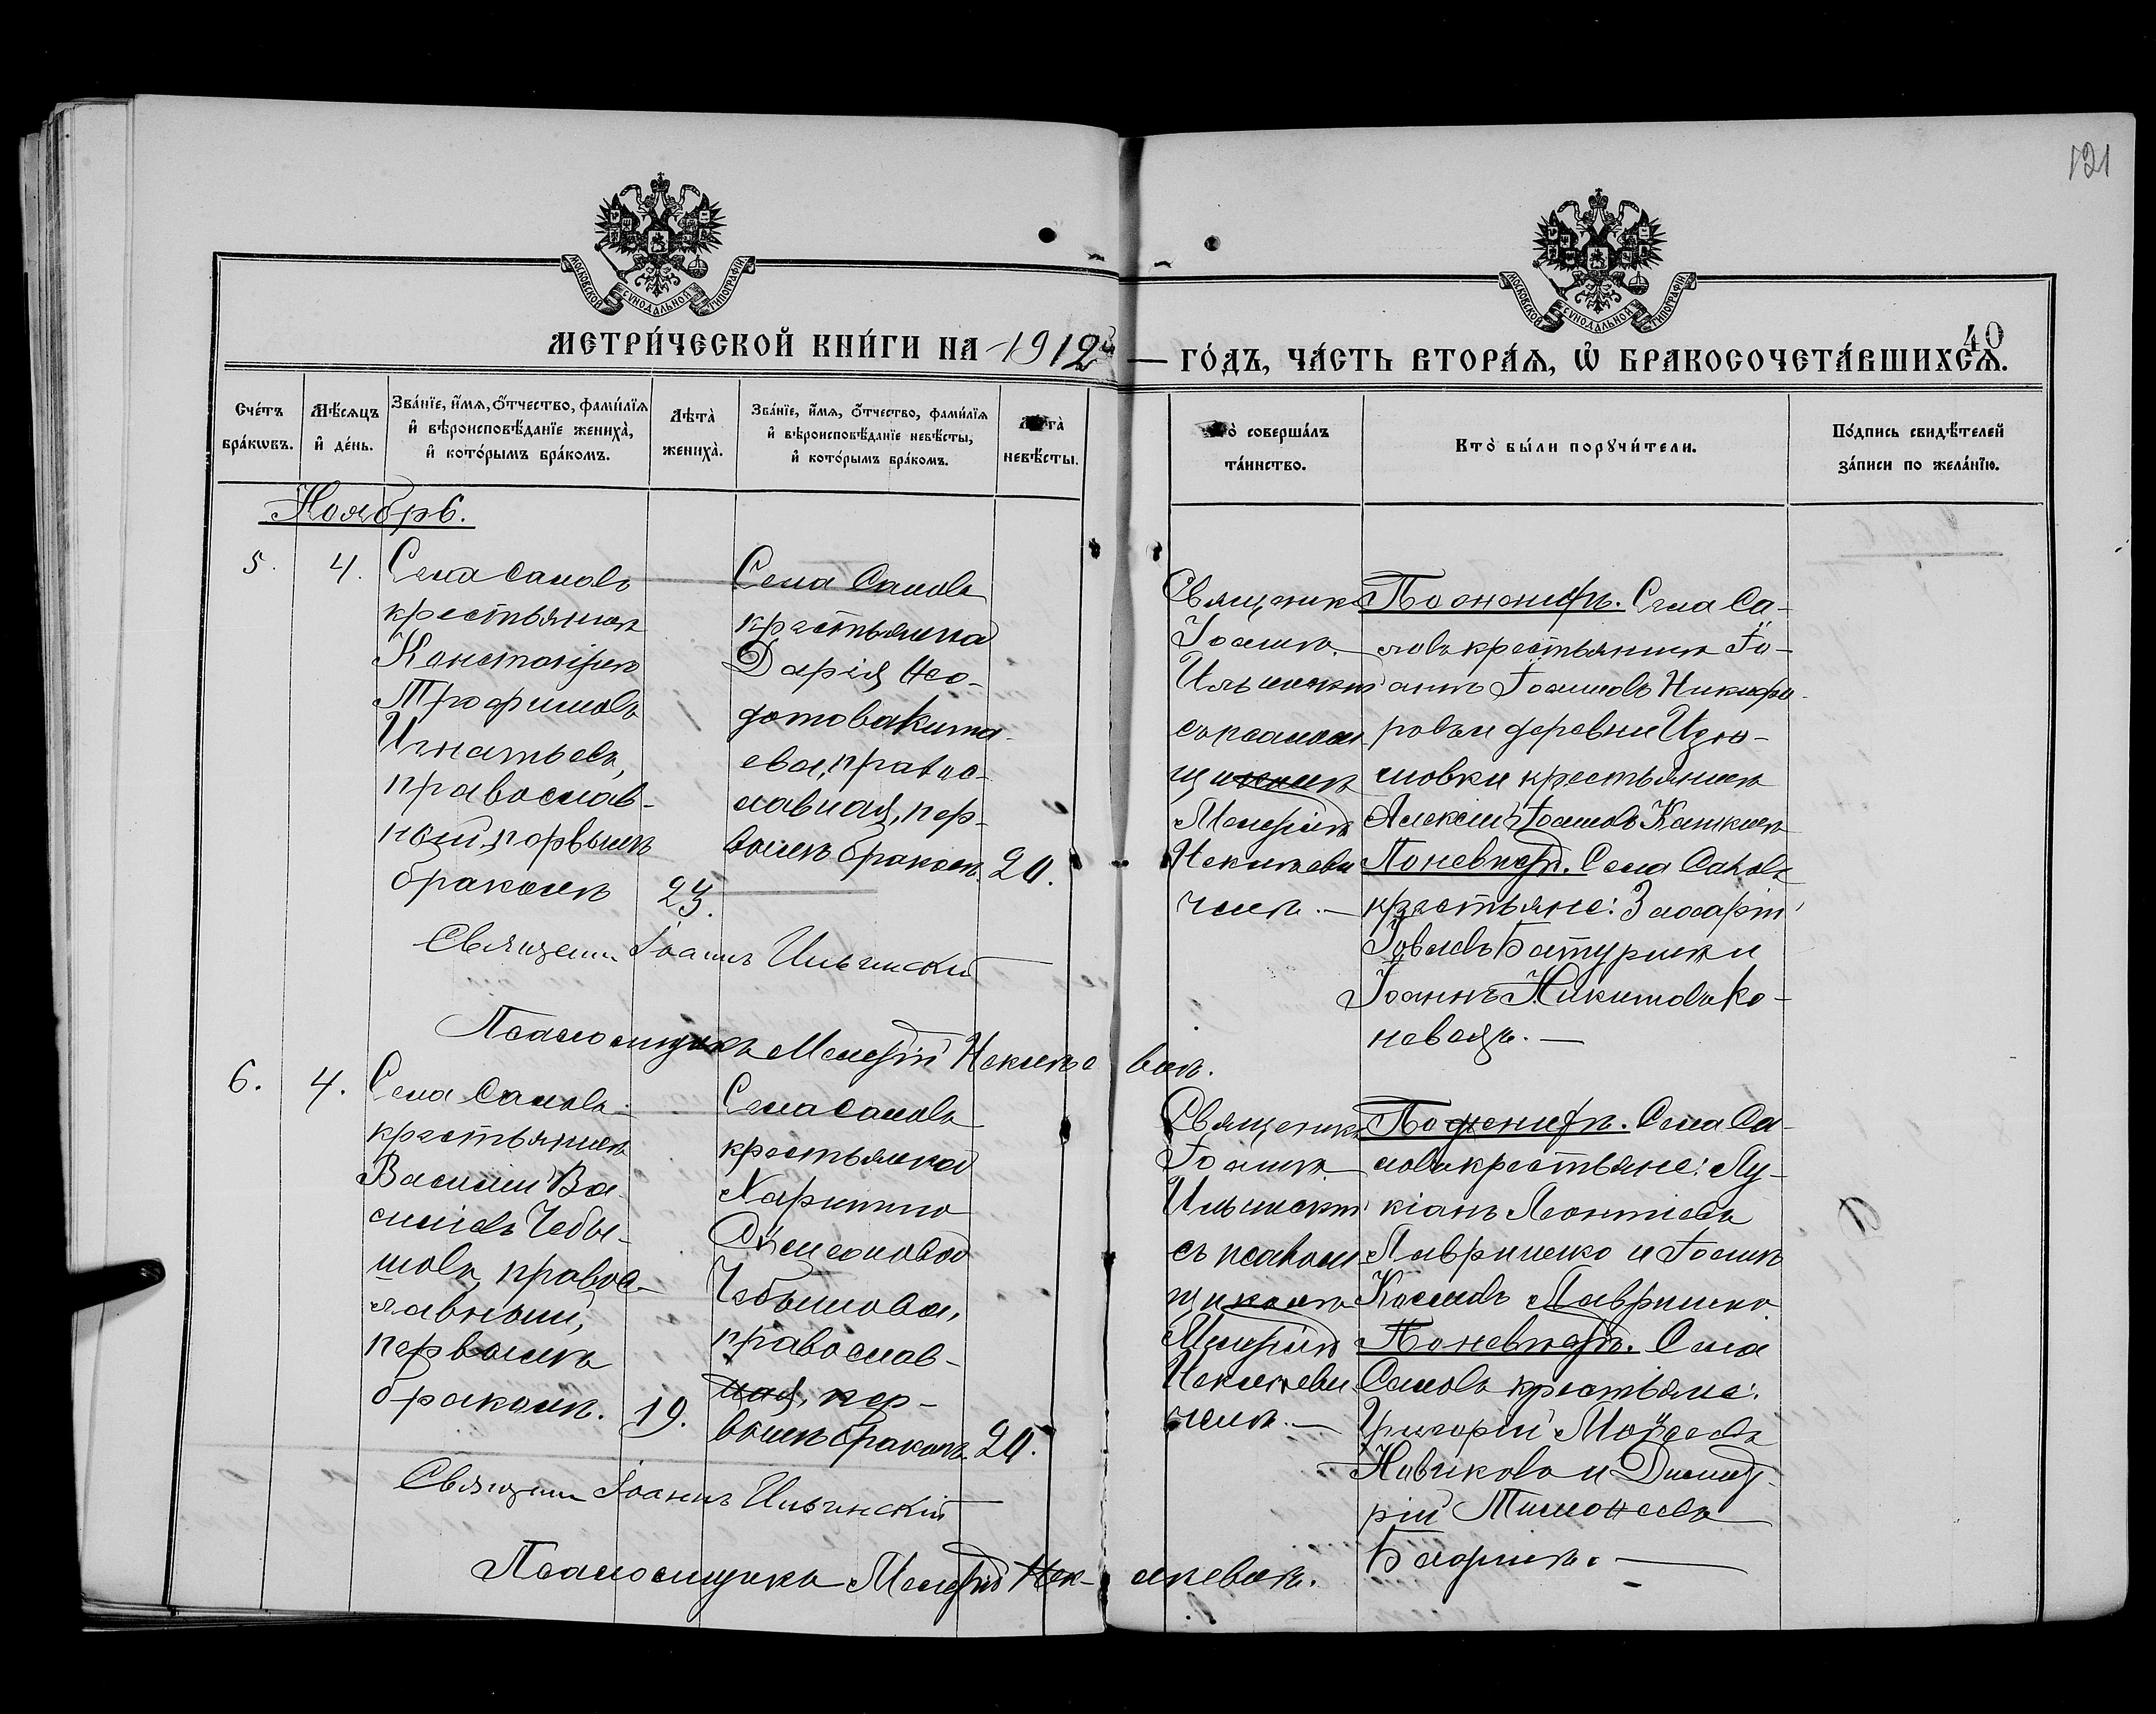 121
МОСКОВСКОЙ СѴНОДАЛЬНОЙ ТИПОГРАФІИ
МОСКОВСКОЙ СѴНОДАЛЬНОЙ ТИПОГРАФІИ
40
МЕТРИ́ЧЕСКОЙ КНИ́ГИ НА 1912й — ГО́ДЪ, ЧА́СТЬ ВТОРА́Ѧ, Ѡ҆ БРАКОСОЧЕТА́ВШИХСѦ.
Сче́тъ бра́кѡвъ.
Мѣ́сѧцъ и҆ де́нь.
Зва́нїе, и҆́мѧ, ѻ҆́тчество, фами́лїѧ и҆ вѣроисповѣ́данїе жениха̀, и҆ кото́рымъ бра́комъ.
Лѣта̀ жениха̀.
Зва́нїе, и҆́мѧ, ѻ҆́тчество, фами́лїѧ и҆ вѣроисповѣ́данїе невѣ́сты, и҆ кото́рымъ бра́комъ.
невѣ́сты.
соверша́лъ та́инство.
Кто̀ бы́ли порꙋчи́тели.
По́дпись свидѣ́телей за́писи по жела́нїю.
Ноябрь.
5.
4.
Села Саловъ
крестьянинъ
Константинъ
Трофимовъ
Игнатьевъ,
православ-
ный, первымъ
бракомъ
23.
Села Салова
крестьянка
Дарія Ѳео-
дотова Кита-
ева, правос-
лавная, пер-
вымъ бракомъ.
20.
Священникъ
Іоаннъ
Ильинскій
съ псаломщ
щикомъ
По женихѣ. Села Са-
лова крестьянинъ Іо-
аннъ Іоанновъ Никифо-
ровъ и деревни Изно-
крестьянинъ
Алексій Іоанновъ
По невѣстѣ. Села Салова
крестьяне: Захарій
Іовлевъ Батуринъ и
Іоаннъ Никитовъ Ко-
новалъ.—
Священн Іоаннъ Ильинскій
Псаломщикъ
6.
4.
Села Салова
крестьянинъ
Василій Ва-
силіевъ Чебы-
шовъ, правос-
лавный,
первымъ
бракомъ.
19.
Села Салова
крестьянка
Харитина
Чебышова,
православ-
ная, пер-
вымъ бракомъ.
20.
Священникъ
Іоаннъ
Ильинскій
съ псалом
щикомъ
По женихѣ. Села Са-
лова крестьяне: Лу-
кіанъ Леонтіевъ
Лавришко и Іоаннъ
Космовъ Лавришко
По невѣстѣ. Села
Салова крестьяне:
Григорій Моисеевъ
Новиковъ и Димит-
рій Тимоѳеевъ
Священн Іоаннъ Ильинскій
Псаломщикъ